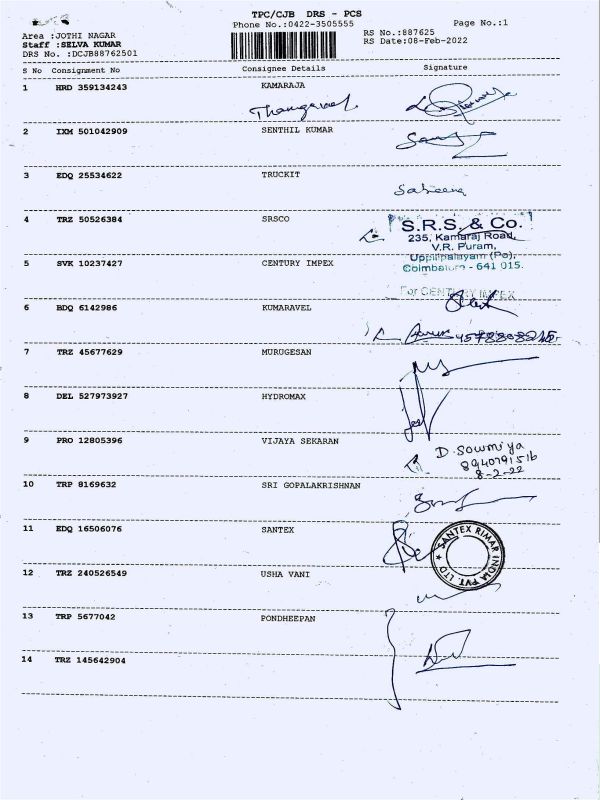 TPC/CJB DRS - PCS
Phone No.:0422-3505555
Page No.:1
Area :JOTHI NAGAR
Staff :SELVA KUMAR
DRS No. :DCJB88762501
RS No.:887625
RS Date:08-Feb-2022
S No Consignment No Consignee Details Signature
1 HRD 359134243 KAMARAJA
Thangavel
2 IXM 501042909 SENTHIL KUMAR
3 EDQ 25534622 TRUCKIT
Sabeena
4 TRZ 50526384 SRSCO
S.R.S. & Co.
235, Kamaraj Road,
V.R. Puram,
Uppilipalayam (Po),
Coimbatore - 641 015.
5 SVK 10237427 CENTURY IMPEX
For CENTURY IMPEX
6 BDQ 6142986 KUMARAVEL
7 TRZ 45677629 MURUGESAN
8 DEL 527973927 HYDROMAX
9 PRO 12805396 VIJAYA SEKARAN
D. Sowmiya
8940791516
8-2-22
10 TRP 8169632 SRI GOPALAKRISHNAN
11 EDQ 16506076 SANTEX
SANTEX RIMAR INDIA PVT. LTD
12 TRZ 240526549 USHA VANI
13 TRP 5677042 PONDHEEPAN
14 TRZ 145642904